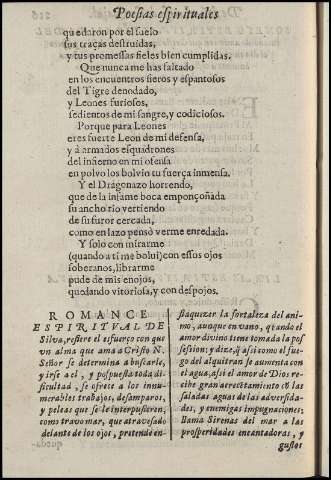 Poesias espirituales
quedaron por el suelo
sus traças destruidas,
y tus promessas fieles bien cumplidas.
Que nunca me has faltado
en los encuentros fieros y espantosos
del Tigre denodado,
y Leones furiosos,
sedientos de mi sangre, y codiciosos.
Porque para Leones
eres fuerte Leon de mi defensa,
y â armados esquadrones
del infierno en mi ofensa
en polvo los bolvio tu fuerça inmensa.
Y el Dragonazo horrendo,
que de la infame boca emponçoñada
su ancho rio vertiendo
de su furor cercada,
como en lazo pensò verme enredada.
Y solo con mirarme
(quando a ti me bolui) con essos ojos
soberanos, librarme
pude de mis enojos,
quedando vitoriosa, y con despojos.
ROMANCE
ESPIRITVAL DE
Silva, refiere el esfuerço con que
vn alma que ama a Cristo N.
Señor se determina a buscarle,
y irse a el, y pospuesta toda di-
ficultad, se ofrece a los innu-
merables trabajos, desamparos,
y peleas que se le interpusieren,
como travo mar, que atravesado
delante de los ojos, pretende en-
flaquezar la fortaleza del ani-
mo, aunque en vano, quando el
amor divino tiene tomada la pos
session; y dize, q̃ assi como el fue-
go del alquitran se aumenta con
el agua, assi el amor de Dios re-
cibe gran acrecentamiento cõ las
saladas aguas de las adversida-
des, y enemigas impugnaciones:
llama Sirenas del mar a las
prosperidades encantadoras, y
gustos